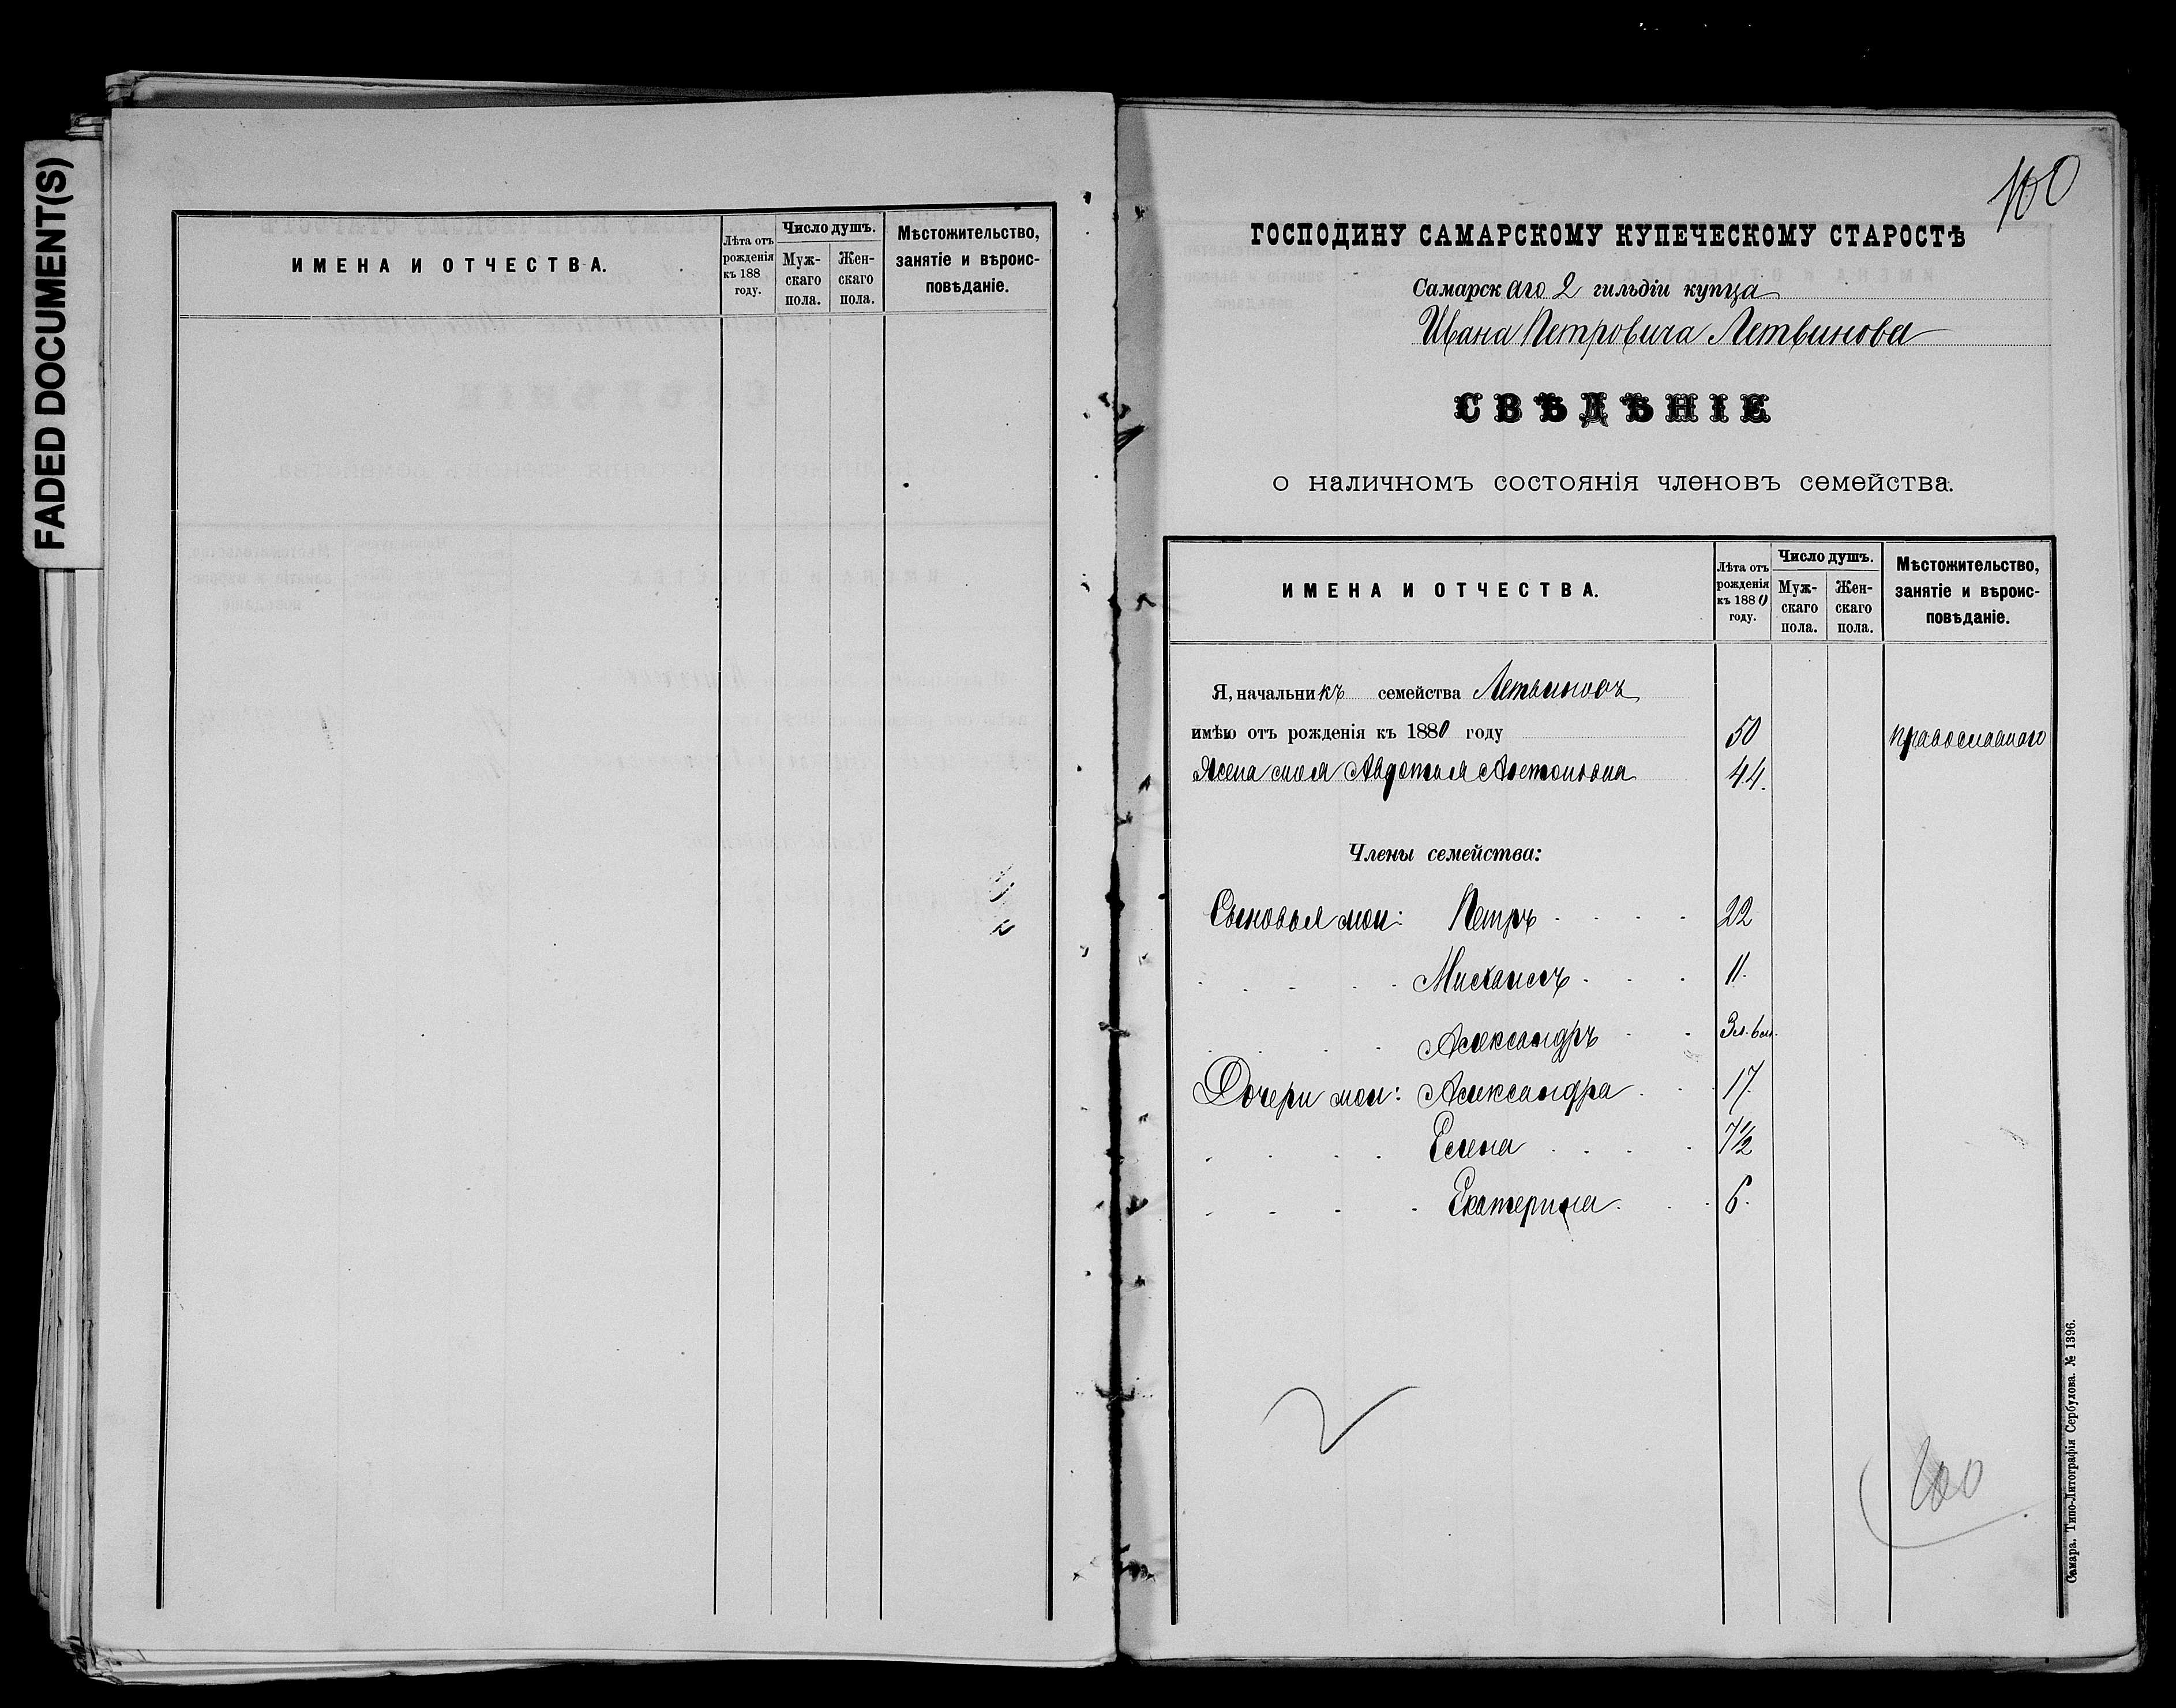 FADED DOCUMENT(S)
ИМЕНА И ОТЧЕСТВА.
Лѣта отъ рожденія къ 188 году.
Число душъ.
Мужскаго пола.
Женскаго пола.
Мѣстожительство, занятіе и вѣроисповѣданіе.
100
ГОСПОДИНУ САМАРСКОМУ КУПЕЧЕСКОМУ СТАРОСТѢ
Самарскаго 2 гильдіи купца
Ивана Петровича Летвинова
СВѢДѢНІЕ
о наличномъ состоянія членовъ семейства.
ИМЕНА И ОТЧЕСТВА.
Лѣта отъ рожденія къ 1880 году.
Число душъ.
Мужскаго пола.
Женскаго пола.
Мѣстожительство, занятіе и вѣроисповѣданіе.
Я, начальникъ семейства Летвиновъ
имѣю отъ рожденія къ 1880 году 50 православнаго
Жена моя Авдотья Антоновна 44.
Члены семейства:
Сыновья мои: Петръ 22
Михаилъ 11.
Александръ 3 л. 6 м.
Дочери мои: Александра 17.
Елена 7 1/2
Екатерина 6.
100
Самара. Типо-Литографія Сербулова. № 1396.